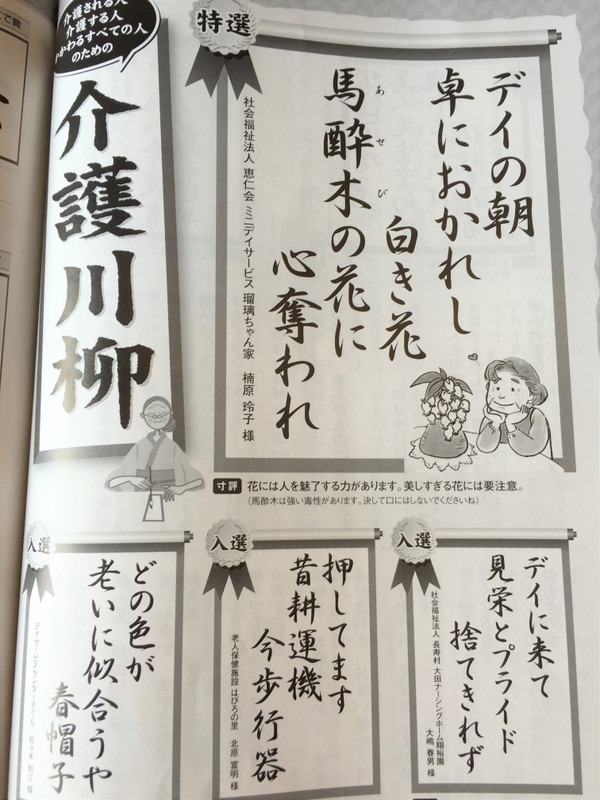 介護される人
介護する人
かかわるすべての人
のための
介護川柳
特選
デイの朝
卓におかれし
白き花
馬酔木の花に
あせび
心奪われ
社会福祉法人 恵仁会 ミニデイサービス 瑠璃ちゃん家 楠原 玲子 様
寸評 花には人を魅了する力があります。美しすぎる花には要注意。
(馬酔木は強い毒性があります。決して口にはしないでくださいね)
入選
デイに来て
見栄とプライド
捨てきれず
社会福祉法人 長寿村 大田ナーシングホーム翔裕園
大嶋 春男 様
入選
押してます
昔耕運機
今歩行器
老人保健施設 はびろの里 北原 富明 様
入選
どの色が
老いに似合うや
春帽子